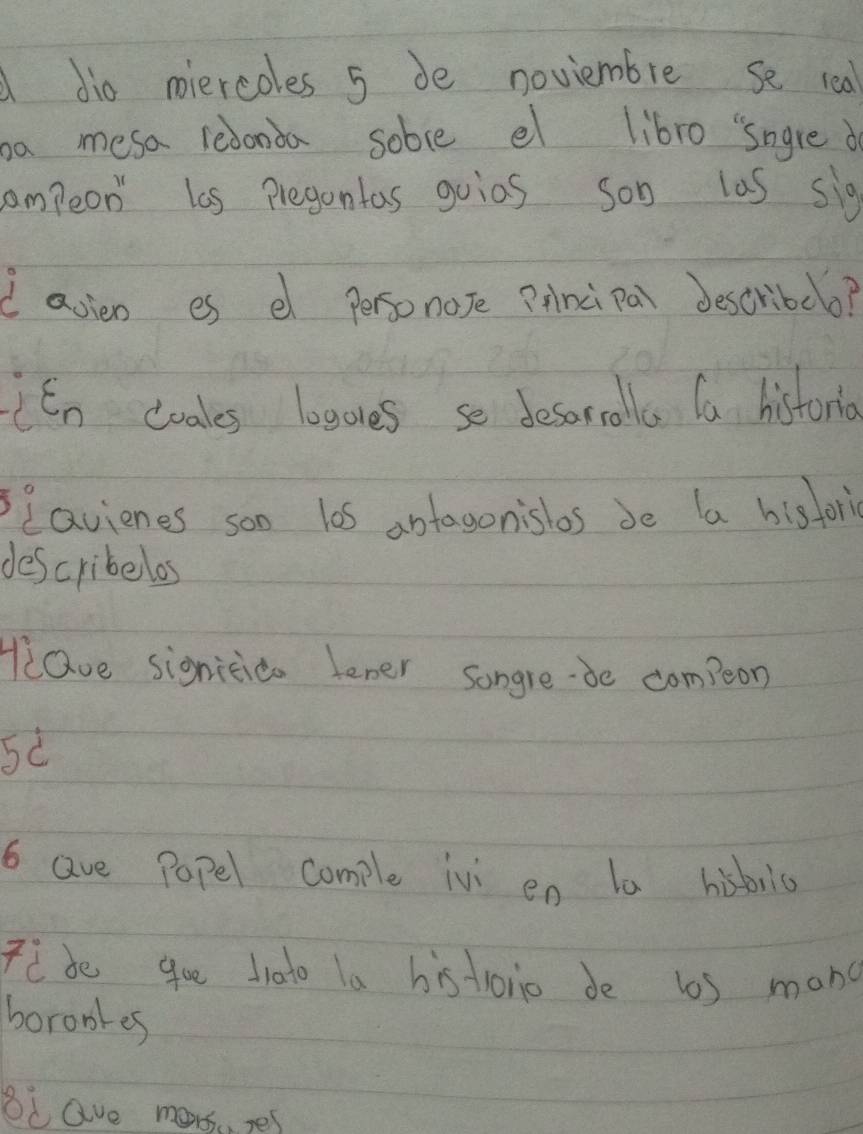 l dia miercoles 5 de noviembre se real
na mesa redonda sobre el libro "Sngre de
ampeon" las Preguntas guias son las sig
¿Quien es el Personaje Principal describelo?
-¿En cuales lugares se desarrolla la historia
3¿Quienes son los antagonistas de la historia
describelos
4¿Que significa tener sangre de campeon
5¿
6 Que Papel cumple ivi en la historia
7¿ de que trata la histroria de los man
borontes
8¿ Que